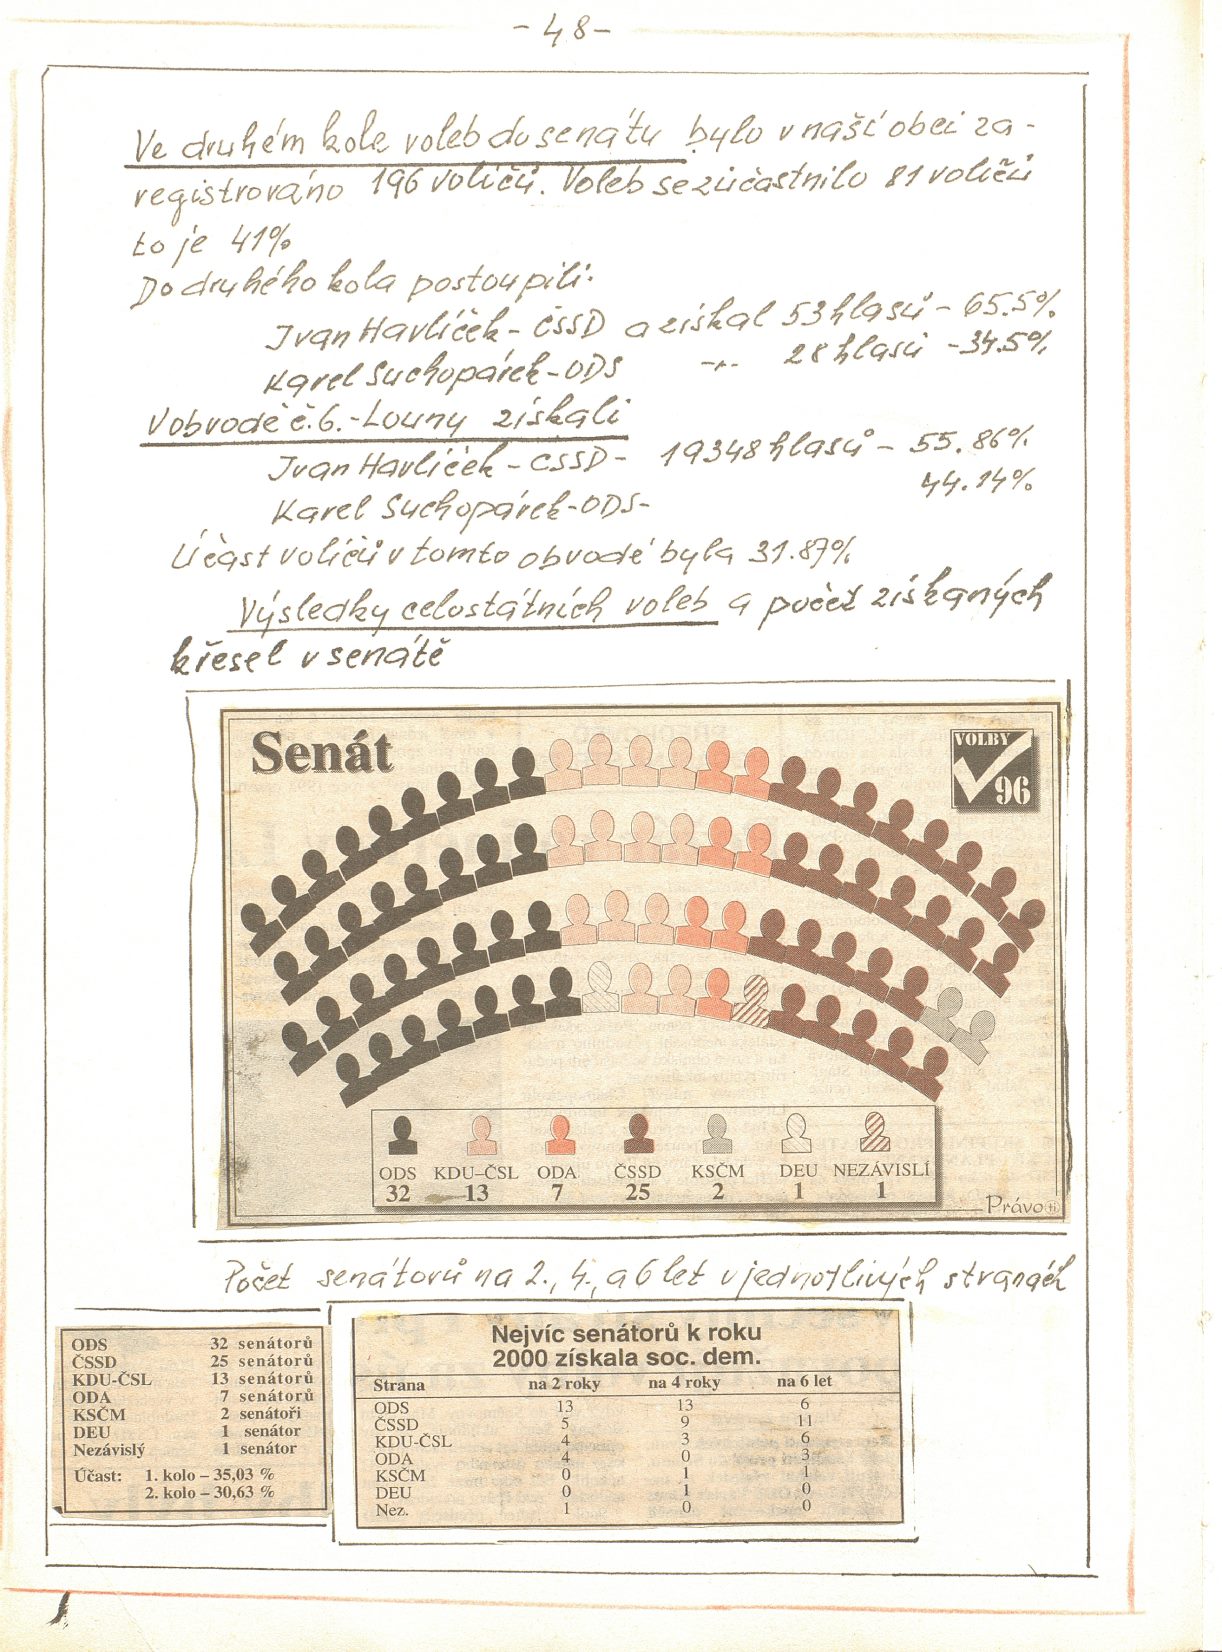 - 48 -
Ve druhém kole voleb do senátu bylo v naší obci za-
registrováno 196 voličů. Voleb se zúčastnilo 81 voličů
to je 41%
Do druhého kola postoupili:
Ivan Havlíček - ČSSD a získal 53 hlasů - 65.5%
Karel Suchopárek - ODS -"- 28 hlasů - 34.5%
V obvodě č. 6. - Louny získali
Ivan Havlíček - ČSSD - 19348 hlasů - 55.86%
Karel Suchopárek - ODS - 44.14%
Účast voličů v tomto obvodě byla 31.87%
Výsledky celostátních voleb a počet získaných
křesel v senátě
Senát
VOLBY
96
ODS KDU–ČSL ODA ČSSD KSČM DEU NEZÁVISLÍ
32 13 7 25 2 1 1
Právo
Počet senátorů na 2., 4., a 6 let v jednotlivých stranách
ODS 32 senátorů
ČSSD 25 senátorů
KDU-ČSL 13 senátorů
ODA 7 senátorů
KSČM 2 senátoři
DEU 1 senátor
Nezávislý 1 senátor
Účast: 1. kolo – 35,03 %
2. kolo – 30,63 %
Nejvíc senátorů k roku
2000 získala soc. dem.
Strana na 2 roky na 4 roky na 6 let
ODS 13 13 6
ČSSD 5 9 11
KDU-ČSL 4 3 6
ODA 4 0 3
KSČM 0 1 1
DEU 0 1 0
Nez. 1 0 0